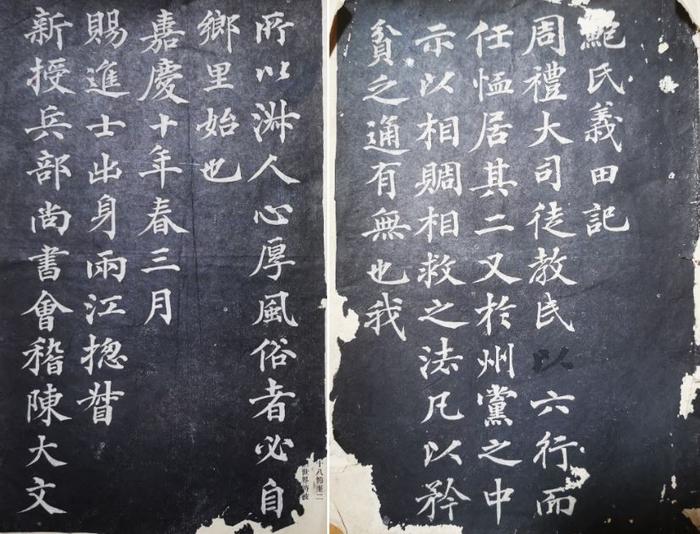 鮑氏義田記
周禮大司徒教民以六行而
任恤居其二又於州黨之中
示以相賙相救之法凡以矜
貧之通有無也我
所以淑人心厚風俗者必自
鄉里始也
嘉慶十年春三月
賜進士出身兩江揔督
新授兵部尚書會稽陳大文